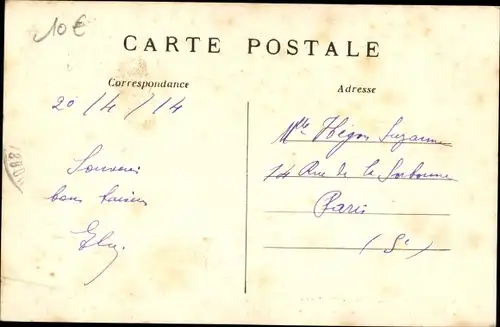 10€
CARTE POSTALE
Correspondance
Adresse
20 / 4 / 14
Souvenir
bons baisers
Mlle Suzanne
14 Rue de la Sorbonne
Paris
(5e)